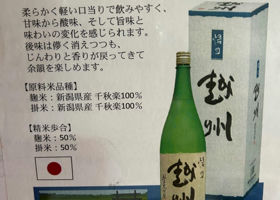 柔らかく軽い口当りで飲みやすく、
甘味から酸味、そして旨味と
味わいの変化を感じられます。
後味は儚く消えつつも、
じんわりと香りが戻ってきて
余韻を楽しめます。
【原料米品種】
麹米：新潟県産 千秋楽100%
掛米：新潟県産 千秋楽100%
【精米歩合】
麹米：50%
掛米：50%
越州
越州